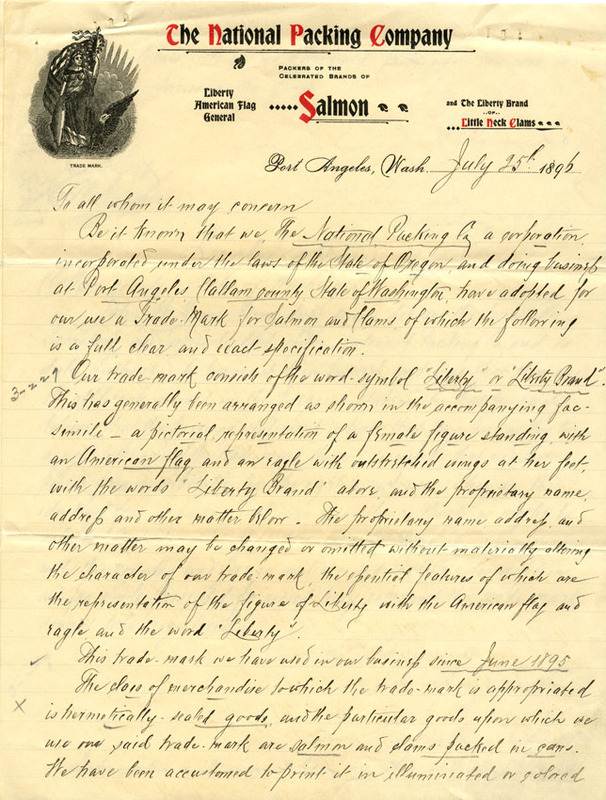 The National Packing Company
PACKERS OF THE
CELEBRATED BRANDS OF
Liberty
American Flag
General
Salmon
and The Liberty Brand
OF
Little Neck Clams
TRADE MARK.
Port Angeles, Wash. July 25th 1896
To all whom it may concern
Be it known that we The National Packing Co a corporation
incorporated under the laws of the State of Oregon and doing business
at Port Angeles Clallam county State of Washington, have adopted for
our use a Trade-Mark for Salmon and Clams of which the following
is a full clear and exact specification.
3-2-29
Our trade-mark consists of the word-symbol "Liberty" or "Liberty Brand".
This has generally been arranged as shown in the accompanying fac-
simile – a pictorial representation of a female figure standing with
an American flag and an eagle with outstretched wings at her feet,
with the words "Liberty Brand" above, and the proprietary name,
address and other matter below. The proprietary name address, and
other matter may be changed or omitted without materially altering
the character of our trade-mark, the essential features of which are
the representation of the figure of Liberty with the American flag and
eagle and the word "Liberty".
This trade-mark we have used in our business since June 1895
The class of merchandise to which the trade-mark is appropriated
is hermetically-sealed goods, and the particular goods upon which we
use our said trade-mark are salmon and clams packed in cans.
We have been accustomed to print it in illuminated or colored